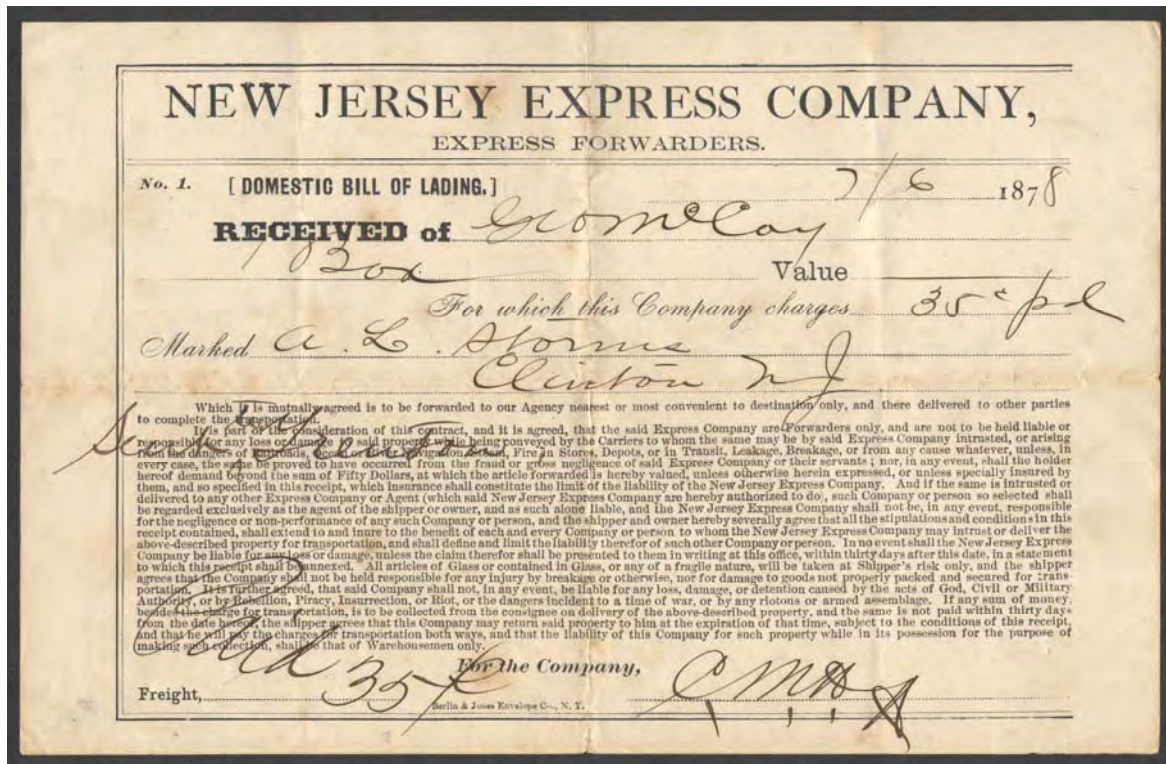 NEW JERSEY EXPRESS COMPANY,
EXPRESS FORWARDERS.
No. 1. [DOMESTIC BILL OF LADING.] 7/6 1878
RECEIVED of Geo McCoy
1 Box Value
For which this Company charges 35c pd
Marked A. L. Storms
Clinton NJ
Which it is mutually agreed is to be forwarded to our Agency nearest or most convenient to destination only, and there delivered to other parties
to complete the transportation.
It is part of the consideration of this contract, and it is agreed, that the said Express Company are Forwarders only, and are not to be held liable or
responsible for any loss or damage to said property while being conveyed by the Carriers to whom the same may be by said Express Company intrusted, or arising
from the dangers of Railroads, Ocean or River Navigation, Steam, Fire in Stores, Depots, or in Transit, Leakage, Breakage, or from any cause whatever, unless, in
every case, the same be proved to have occurred from the fraud or gross negligence of said Express Company or their servants; nor, in any event, shall the holder
hereof demand beyond the sum of Fifty Dollars, at which the article forwarded is hereby valued, unless otherwise herein expressed, or unless specially insured by
them, and so specified in this receipt, which insurance shall constitute the limit of the liability of the New Jersey Express Company. And if the same is intrusted or
delivered to any other Express Company or Agent (which said New Jersey Express Company are hereby authorized to do), such Company or person so selected shall
be regarded exclusively as the agent of the shipper or owner, and as such alone liable, and the New Jersey Express Company shall not be, in any event, responsible
for the negligence or non-performance of any such Company or person, and the shipper and owner hereby severally agree that all the stipulations and conditions in this
receipt contained, shall extend to and inure to the benefit of each and every Company or person to whom the New Jersey Express Company may intrust or deliver the
above-described property for transportation, and shall define and limit the liability therefor of such other Company or person. In no event shall the New Jersey Express
Company be liable for any loss or damage, unless the claim therefor shall be presented to them in writing at this office, within thirty days after this date, in a statement
to which this receipt shall be annexed. All articles of Glass or contained in Glass, or any of a fragile nature, will be taken at Shipper's risk only, and the shipper
agrees that the Company shall not be held responsible for any injury by breakage or otherwise, nor for damage to goods not properly packed and secured for trans-
portation. It is further agreed, that said Company shall not, in any event, be liable for any loss, damage, or detention caused by the acts of God, Civil or Military
Authority, or by Rebellion, Piracy, Insurrection, or Riot, or the dangers incident to a time of war, or by any riotous or armed assemblage. If any sum of money,
besides the charge for transportation, is to be collected from the consignee on delivery of the above-described property, and the same is not paid within thirty days
from the date hereof, the shipper agrees that this Company may return said property to him at the expiration of that time, subject to the conditions of this receipt,
and that he will pay the charges for transportation both ways, and that the liability of this Company for such property while in its possession for the purpose of
making such collection, shall be that of Warehousemen only.
Paid 35c
For the Company,
Freight, CMH
Berlin & Jones Envelope Co., N. Y.